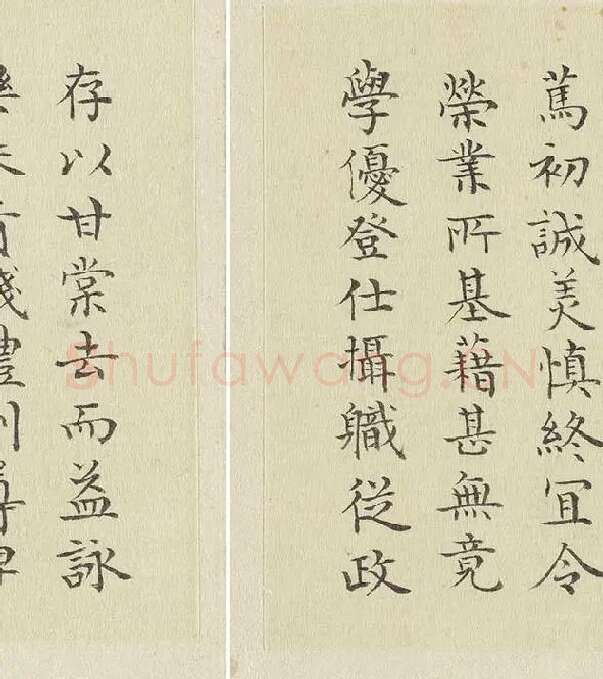 篤初誠美慎終宜令
榮業所基藉甚無竟
學優登仕攝職從政
存以甘棠去而益詠
貴賤禮別尊卑
Shufawang.CN